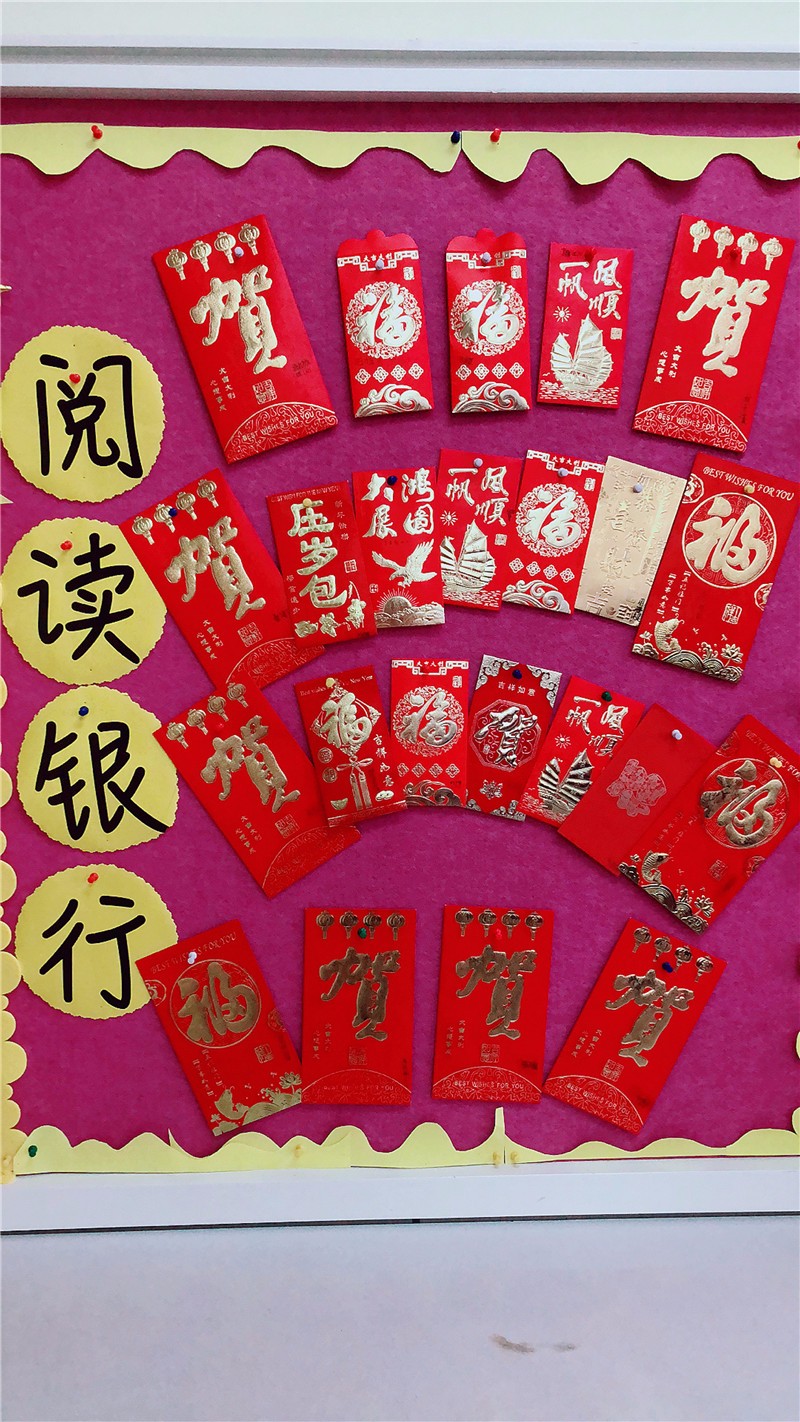 阅
读
银
行
贺
大吉大利
心想事成
BEST WISHES FOR YOU
大吉大利
福
大吉大利
福
一帆风顺
贺
大吉大利
心想事成
BEST WISHES FOR YOU
贺
大吉大利
心想事成
压岁包
大展鸿图
一帆风顺
大吉大利
福
BEST WISHES FOR YOU
福
贺
大吉大利
心想事成
福
吉祥如意
大吉大利
福
吉祥如意
贺
一帆风顺
BEST WISHES
福
BEST WISHES FOR YOU
福
贺
大吉大利
心想事成
BEST WISHES FOR YOU
贺
大吉大利
心想事成
BEST WISHES FOR YOU
贺
大吉大利
心想事成
BEST WISHES FOR YOU